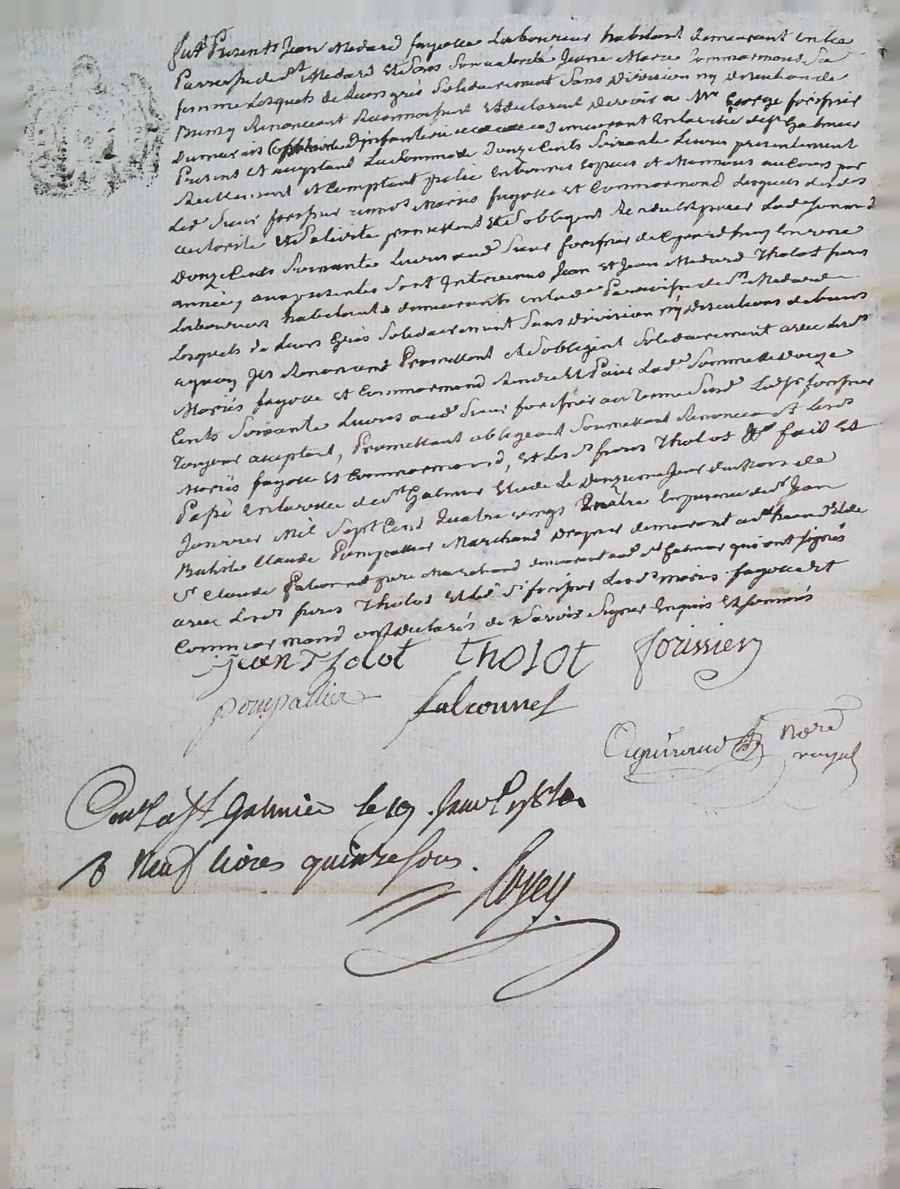 fut Present Jean Medard fayolle Laboureur habitant demeurant en la
Parroisse de st Medard et de son authorité Jeane Marie Commarmond sa
femme Lesquels de Leurs grés solidairement sans division ny discution de
Biens y Renonceant Reconnoissent et declarent devoir a Mr George forissier
Dumarais d'infanterie demeurant en la ville de st Galmier
Present et aceptant La somme de Douze Cents soixante Livres presentement
Reellement et Comptant en bonnes especes et Monnois au Cours par
Led sieur forissier Mariés fayolle et Commarmond Lesquels
authorité promettent et s'obligent Rendre et payer Lade somme de
Douze Cents soixante Livres aud sieur forissier en une
année, aux presentes sont Intervenus Jean et Jean Medard Tholot freres
Laboureurs habitants demeurants en lade Parroisse de st Medard
Lesquels de Leurs grés solidairement sans division ny discutions de biens
a quoy Ils Renoncent Promettent et s'obligent solidairement avec Lesd
Mariés fayolle et Commarmond Rendre et Paier Lade somme de douze
Cents soixante Livres aud sieur forissier au Terme Led sr forissier
Toujour aceptant, Promettant obligeant soumettant Renonceant Lesd
Mariés fayolle et Commarmond, et Lesd freres Tholot fait et
Passé en la ville de st Galmier Etude Le Jour du Mois de
Janvier Mil sept Cent quatre vingt quatre en presence de sr Jean
Batiste Claude Pompallier Marchand Drapier demeurant et de
sr Claude falconnet Marchand demeurant aud st Galmier qui ont signés
avec Lesd freres Tholot et led sr forissier Lesd Mariés fayolle et
Commarmond ont declarés ne sçavoir signer enquis et sommés
Jean Tholot Tholot forissier
pompallier falconnet
nore
royal
Conlé a st Galmier le 19 Janv
R neuf livres quinze sous.